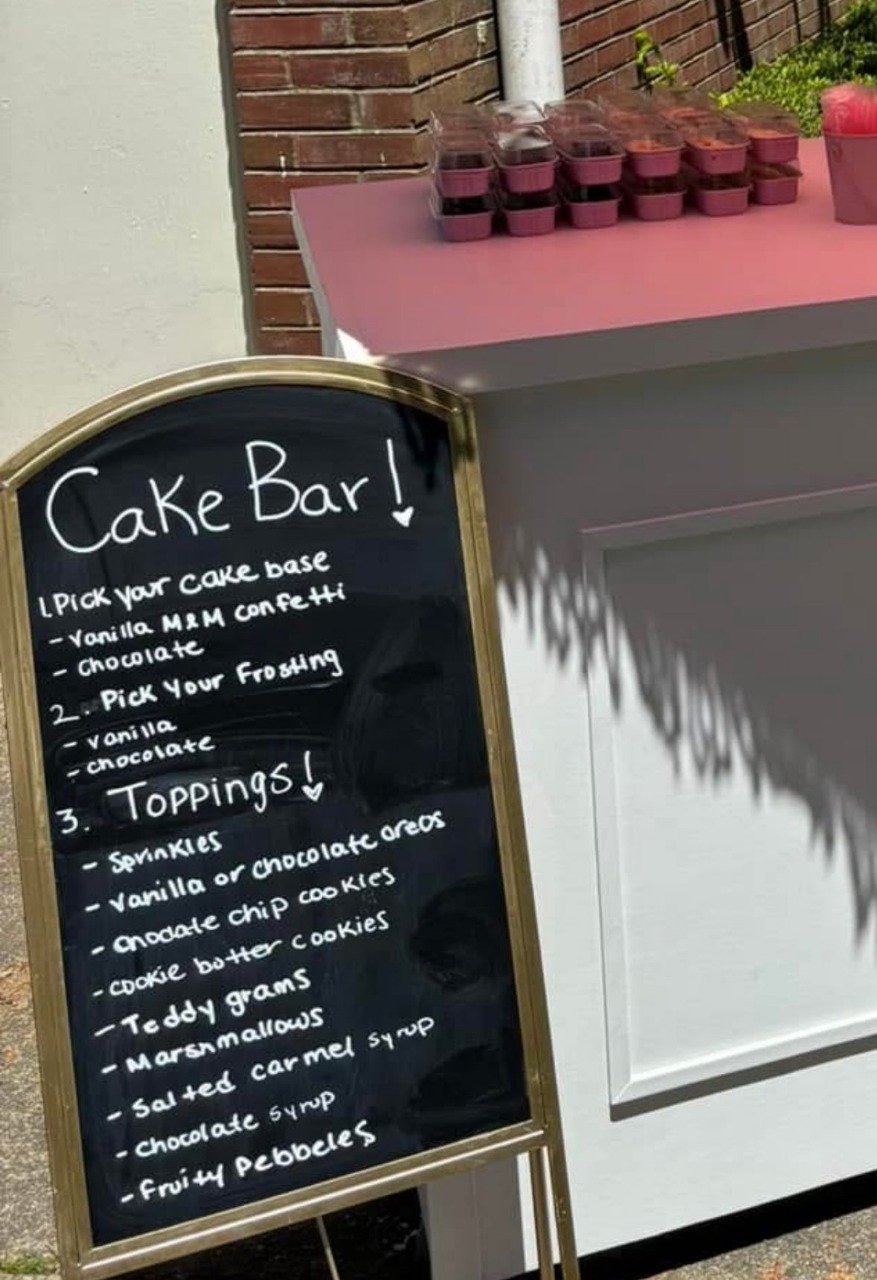 Cake Bar!
1. Pick your cake base
- Vanilla M&M confetti
- Chocolate
2. Pick Your Frosting
- Vanilla
- chocolate
3. Toppings!
- Sprinkles
- Vanilla or chocolate oreos
- chocalate chip cookies
- cookie butter cookies
- Teddy grams
- Marshmallows
- Salted carmel syrup
- chocolate syrup
- Fruity Pebbeles